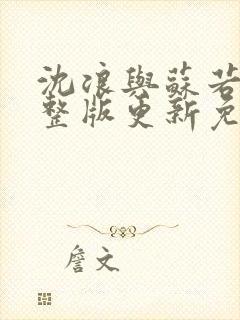 沈浪與蘇若
整版更新免
詹文